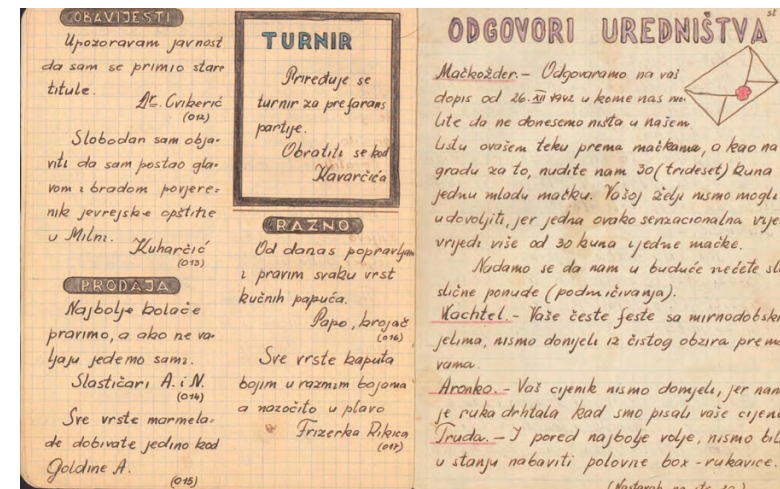 OBAVIJESTI
Upozoravam javnost
da sam se primio stare
titule.
Dr. Cviberić
(012)
Slobodan sam obja-
viti da sam postao gla-
vom i bradom povjere-
nik jevrejske opštine
u Milni.
Kuharčić
(013)
PRODAJA
Najbolje kolače
pravimo, a ako ne va-
ljaju jedemo sami.
Slastičari A. i N.
(014)
Sve vrste marmela-
de dobivate jedino kod
Goldine A.
(015)
TURNIR
Priređuje se
turnir za preferans
partije.
Obratiti se kod
Kavarčića
RAZNO
Od danas popravljam
i pravim svaku vrst
kućnih papuča.
Papo, krojač
(016)
Sve vrste kaputa
bojim u raznim bojama
a nazočito u plavo
Frizerka Rikica
(017)
ODGOVORI UREDNIŠTVA
Mačkožder. - Odgovaramo na vaš
dopis od 26. XII 1942 u kome nas mo-
lite da ne donesemo ništa u našem
listu o vašem teku prema mačkama, a kao na
gradu za to, nudite nam 30 (trideset) kuna
jednu mladu mačku. Vašoj želji nismo mogli
udovoljiti, jer jedna ovako senzacionalna vije
vrijedi više od 30 kuna i jedne mačke.
Nadamo se da nam u buduće nećete sl
slične ponude (podmićivanja).
Wachtel. - Vaše česte feste sa mirnodobski
jelima, nismo donijeli iz čistog obzira prema
vama.
Aronko. - Vaš cijenik nismo donijeli, jer nam
je ruka drhtala kad smo pisali vaše cijene
Truda. - I pored najbolje volje, nismo bili
u stanju nabaviti polovne box-rukavice.